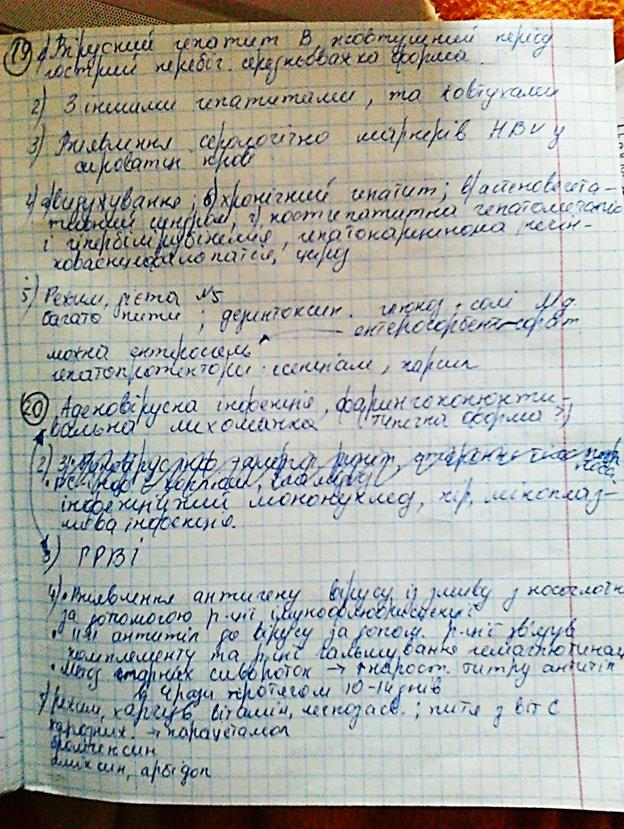 19 1) Вірусний гепатит В жовтушний період
гострий перебіг. середньважка форма.
2) З іншими гепатитами, та жовтухами
3) Виявлення серологічно маркерів HBV у
сироватці крові
4) а) видужування; б) хронічний гепатит; в) астеновегета-
тивний синдром, г) постгепатитна гепатомегалія
і гіпербілірубінемія, гепатокарцинома, печін-
цироз
5) Режим, дієта №5
багато пити; дезінтоксик. глюкоз. солі Mg
ентеросорбенти
можна ентеросгель
гепатопротектори: есенціале, карсил
20 Аденовірусна інфекція, фарингоконюкти-
вальна лихоманка (типічна форма?)
2)
інфекційний мононуклеоз, кір, мікоплаз-
мова інфекція.
3) ГРВІ
4) • Виявлення антигену вірусу із змиву з носоглотки
за допомогою р-ції імунофлюоресценції
• антитіл до вірусу за допом. р-ції звязув
комплементу та р-ції гальмування гемаглютинації
• Метод парних сивороток → нарост. титру антитіл
в 4 рази протягом 10-14 днів
5) режим, харчув, вітамін, ; пиття з віт С
→ парацетамол
бромгексин
аміксин, арбідол